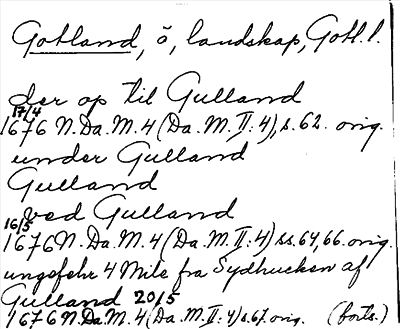 Gotland, ö, landskap, Gotl. l.
der op til Gulland
17/4
1676 N.Da.M.4 (Da.M.II:4), s.62. orig.
under Gulland
Gulland
ved Gulland
16/5
1676 N.Da.M.4 (Da.M.II:4) ss.64,66. orig.
ungefehr 4 Mile fra Sydhucken af
Gulland 20/5
1676 N.Da.M.4 (Da.M.II:4) s.67. orig. (forts.)